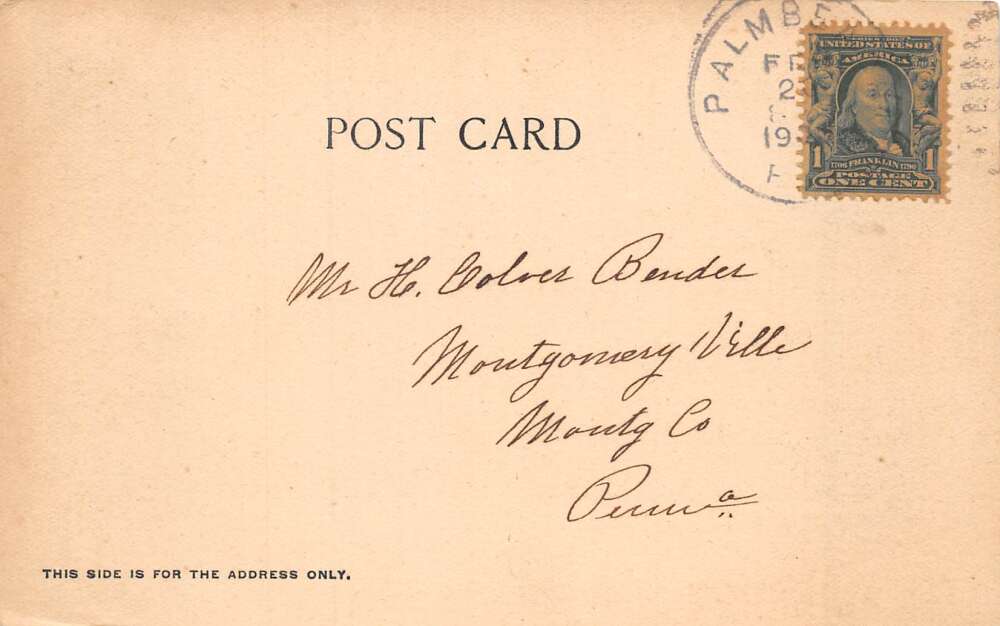 PALMBE
FE
2
19
SERIES 1902
UNITED STATES OF
AMERICA
1 1706 FRANKLIN 1790 1
POSTAGE
ONE CENT
POST CARD
Mr H. Colver Bender
Montgomery Ville
Montg Co
Penna
THIS SIDE IS FOR THE ADDRESS ONLY.